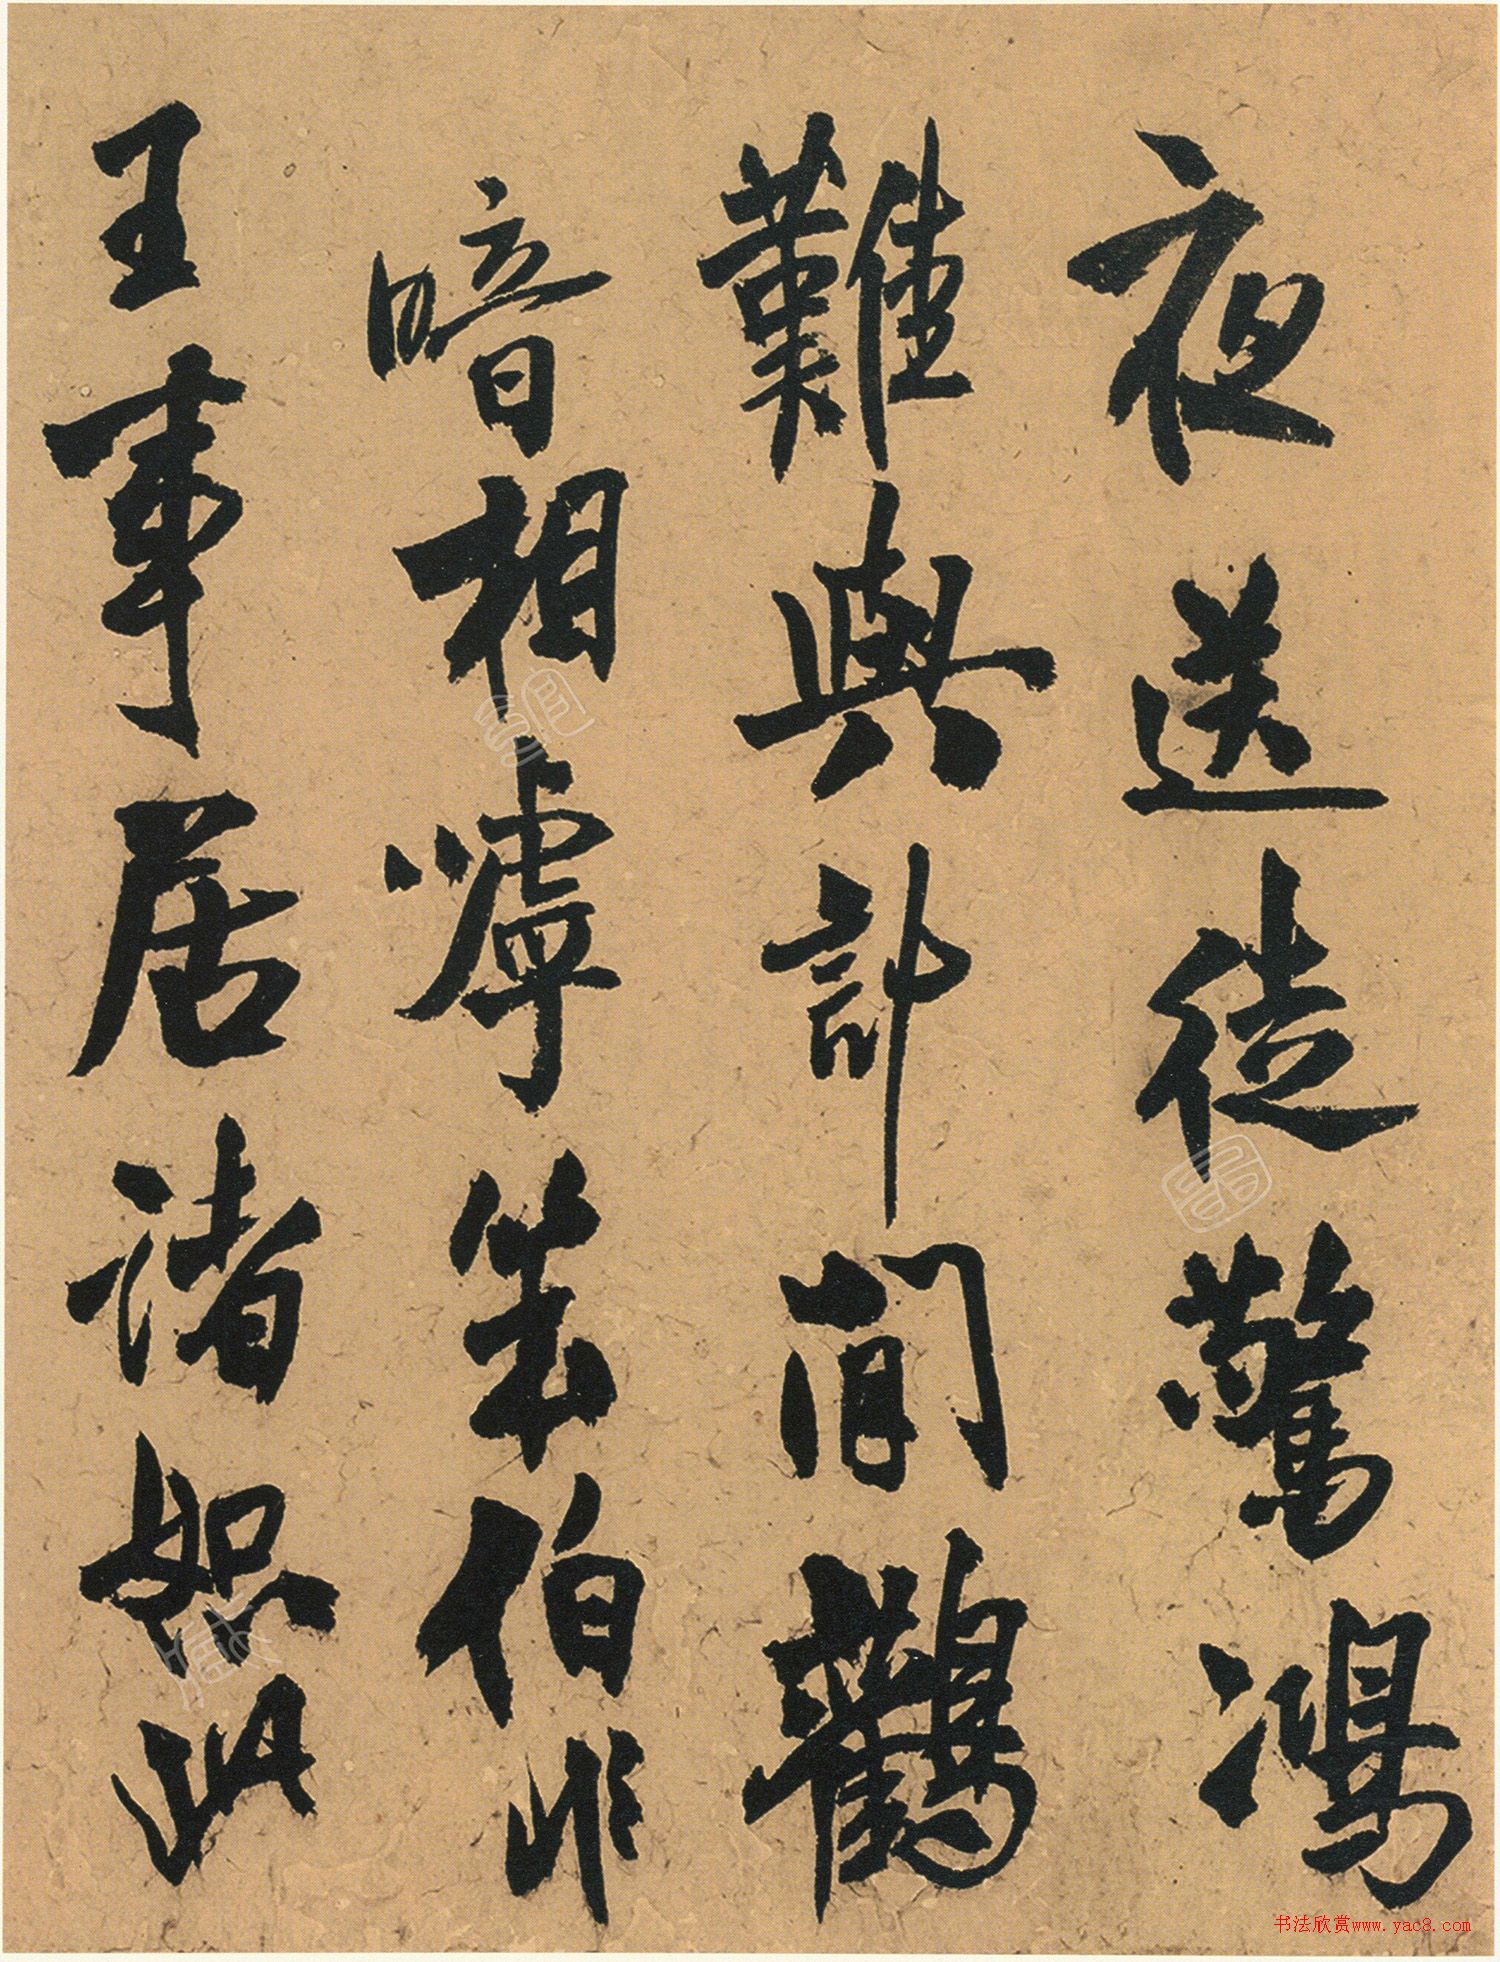 夜送徒驚鴻
難與計閒鸛
暗相嘑伯非
王事居諸此
书法欣赏www.yac8.com